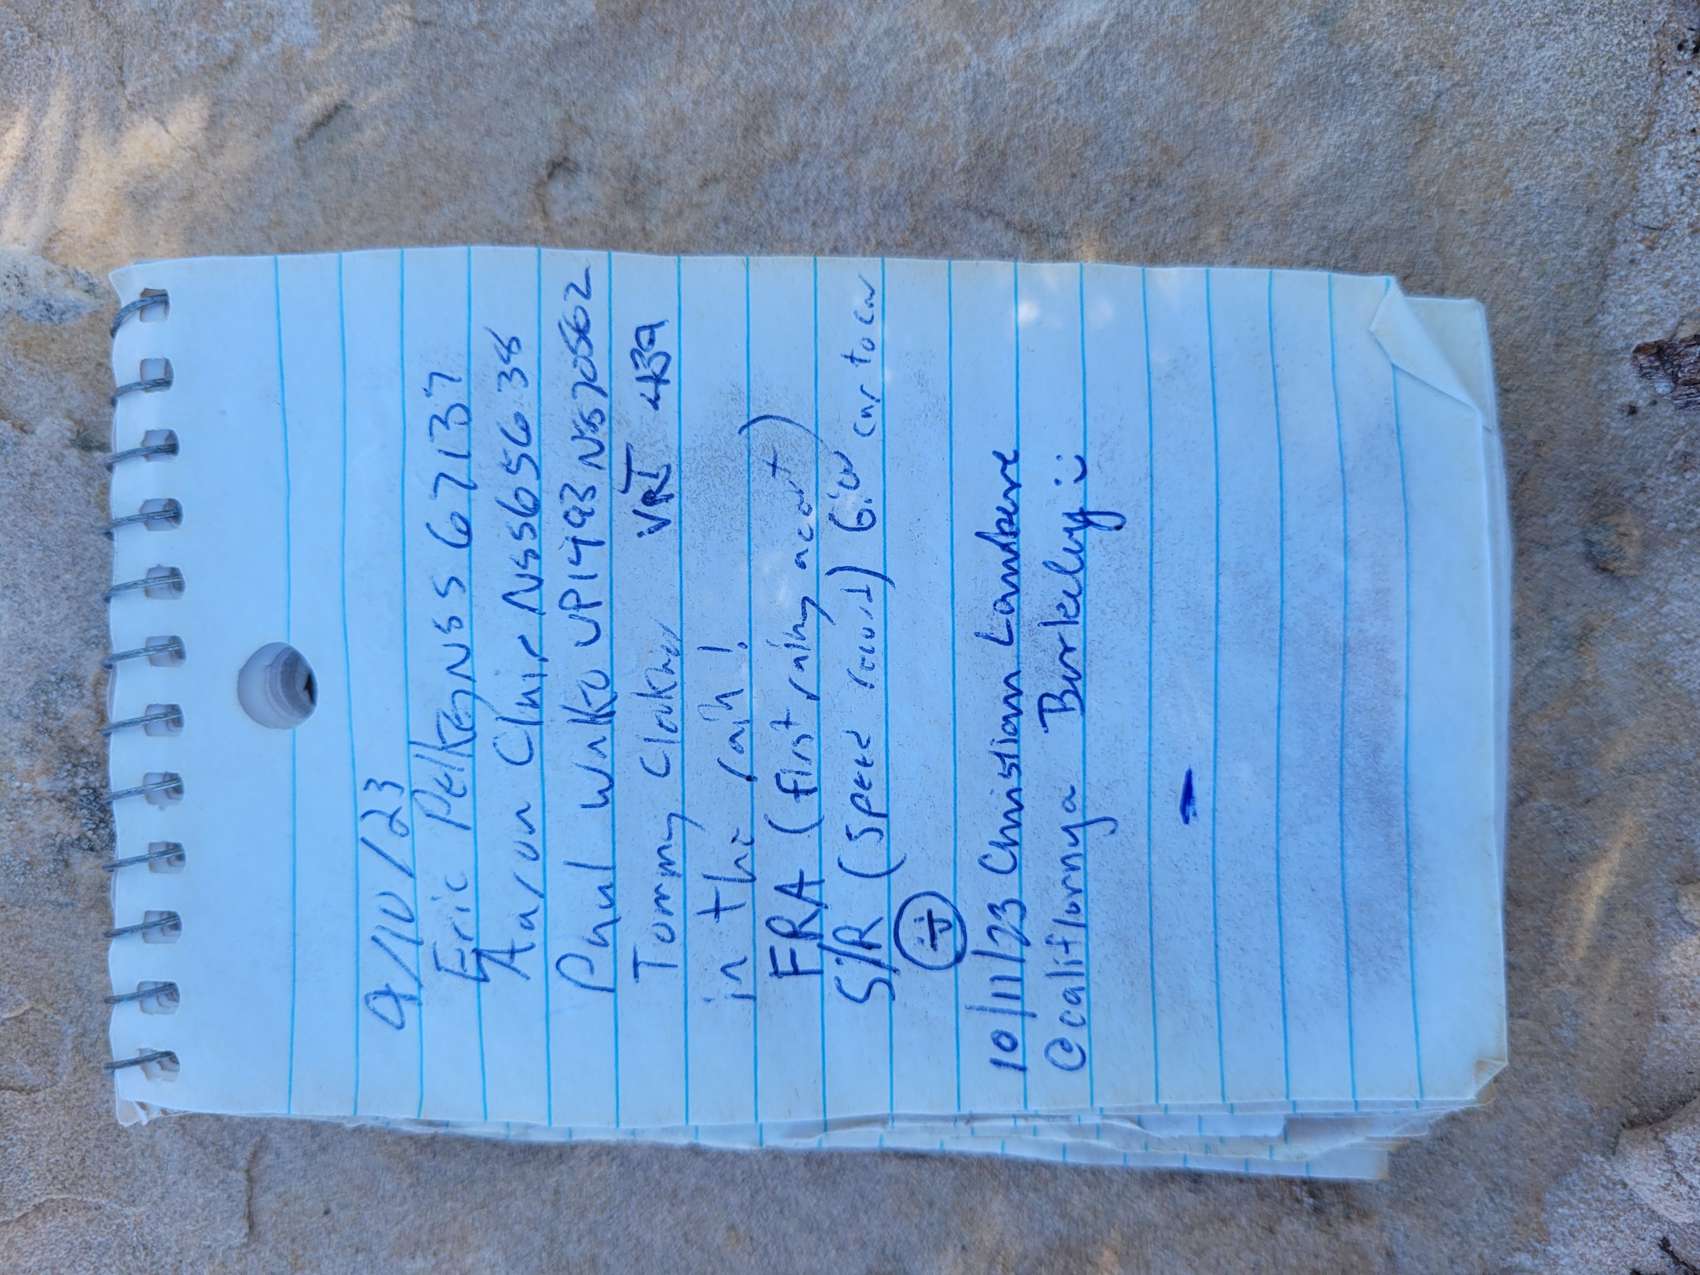 9/10/23
Eric Pelkey NSS 67137
Aaron Clair NSS65638
Paul Walko VPI493 NSS70562
Tommy VRT 439
in the rain!
FRA (first rainy ascent)
S/R (speed record) 6:00 car to car
10/11/23 Christian
@califlornya Burkeley :)